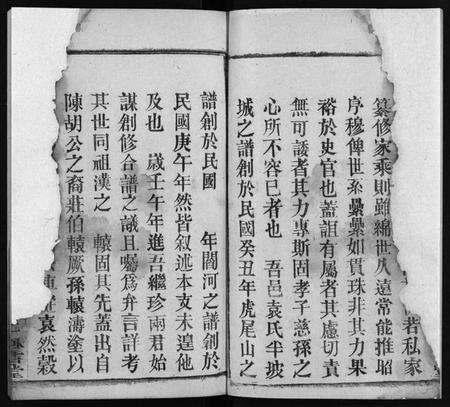 若私家
纂修家乘則雖綿世久遠常能推昭
序穆俾世系纍纍如貫珠非其力果
裕於史官也蓋詛有屬者其慮切責
無可諉者其力專斯固孝子慈孫之
心所不容已者也 吾邑袁氏半坡
城之譜創於民國癸丑年虎尾山之
譜創於民國 年閻河之譜創於
民國庚午年然皆叙述本支未遑他
及也 歲壬午年進吾繼珍兩君始
謀創修合譜之議且囑爲弁言詳考
其世同祖漢之 轅固其先蓋出自
陳胡公之裔莊伯轅厥孫轅濤塗以
袁然穀